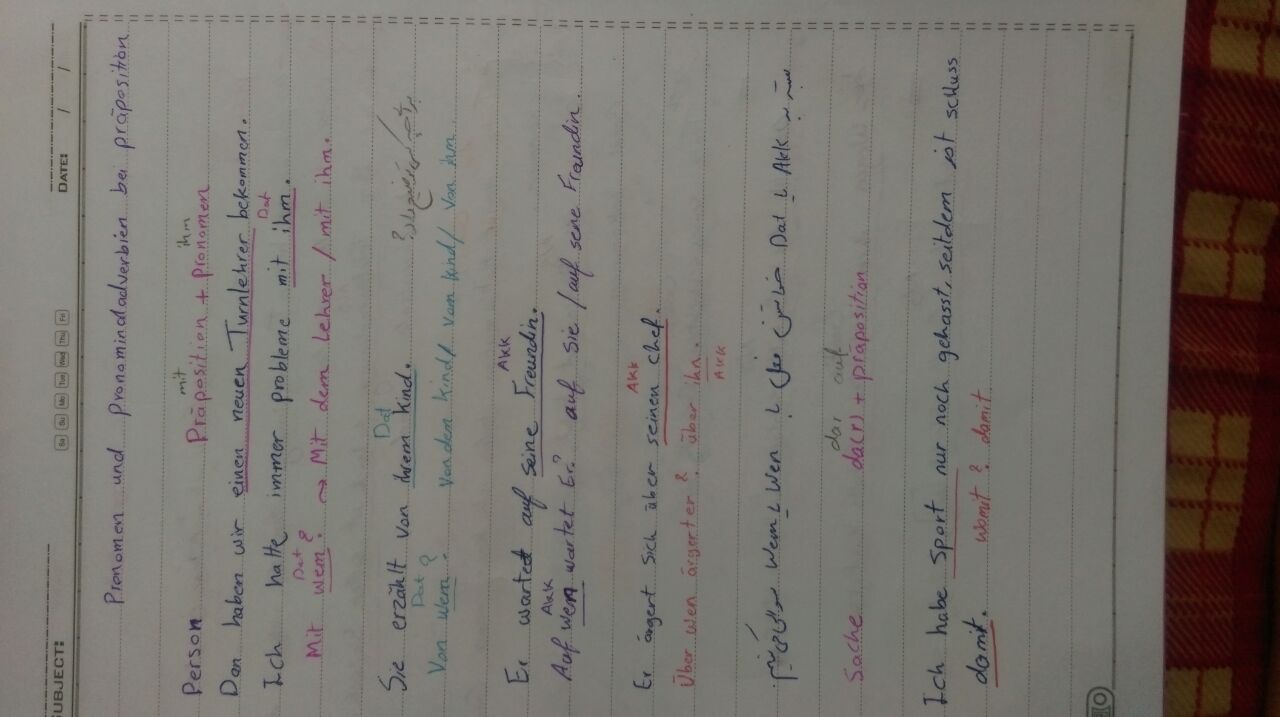 SUBJECT:
Sa Su Mo Tue Wed Thu Fri
DATE: / /
Pronomen und pronominaladverbien bei präposition
mit ihm
Person Präposition + pronomen
Dan haben wir einen neuen Turnlehrer bekommen.
Dat
Ich hatte immer probleme mit ihm.
Dat
Mit wem? → Mit dem Lehrer / mit ihm.
Dat
Sie erzählt von ihrem Kind.
Dat
Von wem? Von dem Kind / vom Kind / von ihm
Akk
Er wartet auf seine Freundin.
Akk
Auf wen wartet Er? auf Sie / auf seine Freundin.
Akk
Er ärgert sich über seinen chef.
Über wen ärgerter? über ihn.
Akk
wem با Wen با Dat با Akk
dar auf
Sache da(r) + präposition
Ich habe Sport nur noch gehasst, seitdem ist schluss
damit. womit? damit